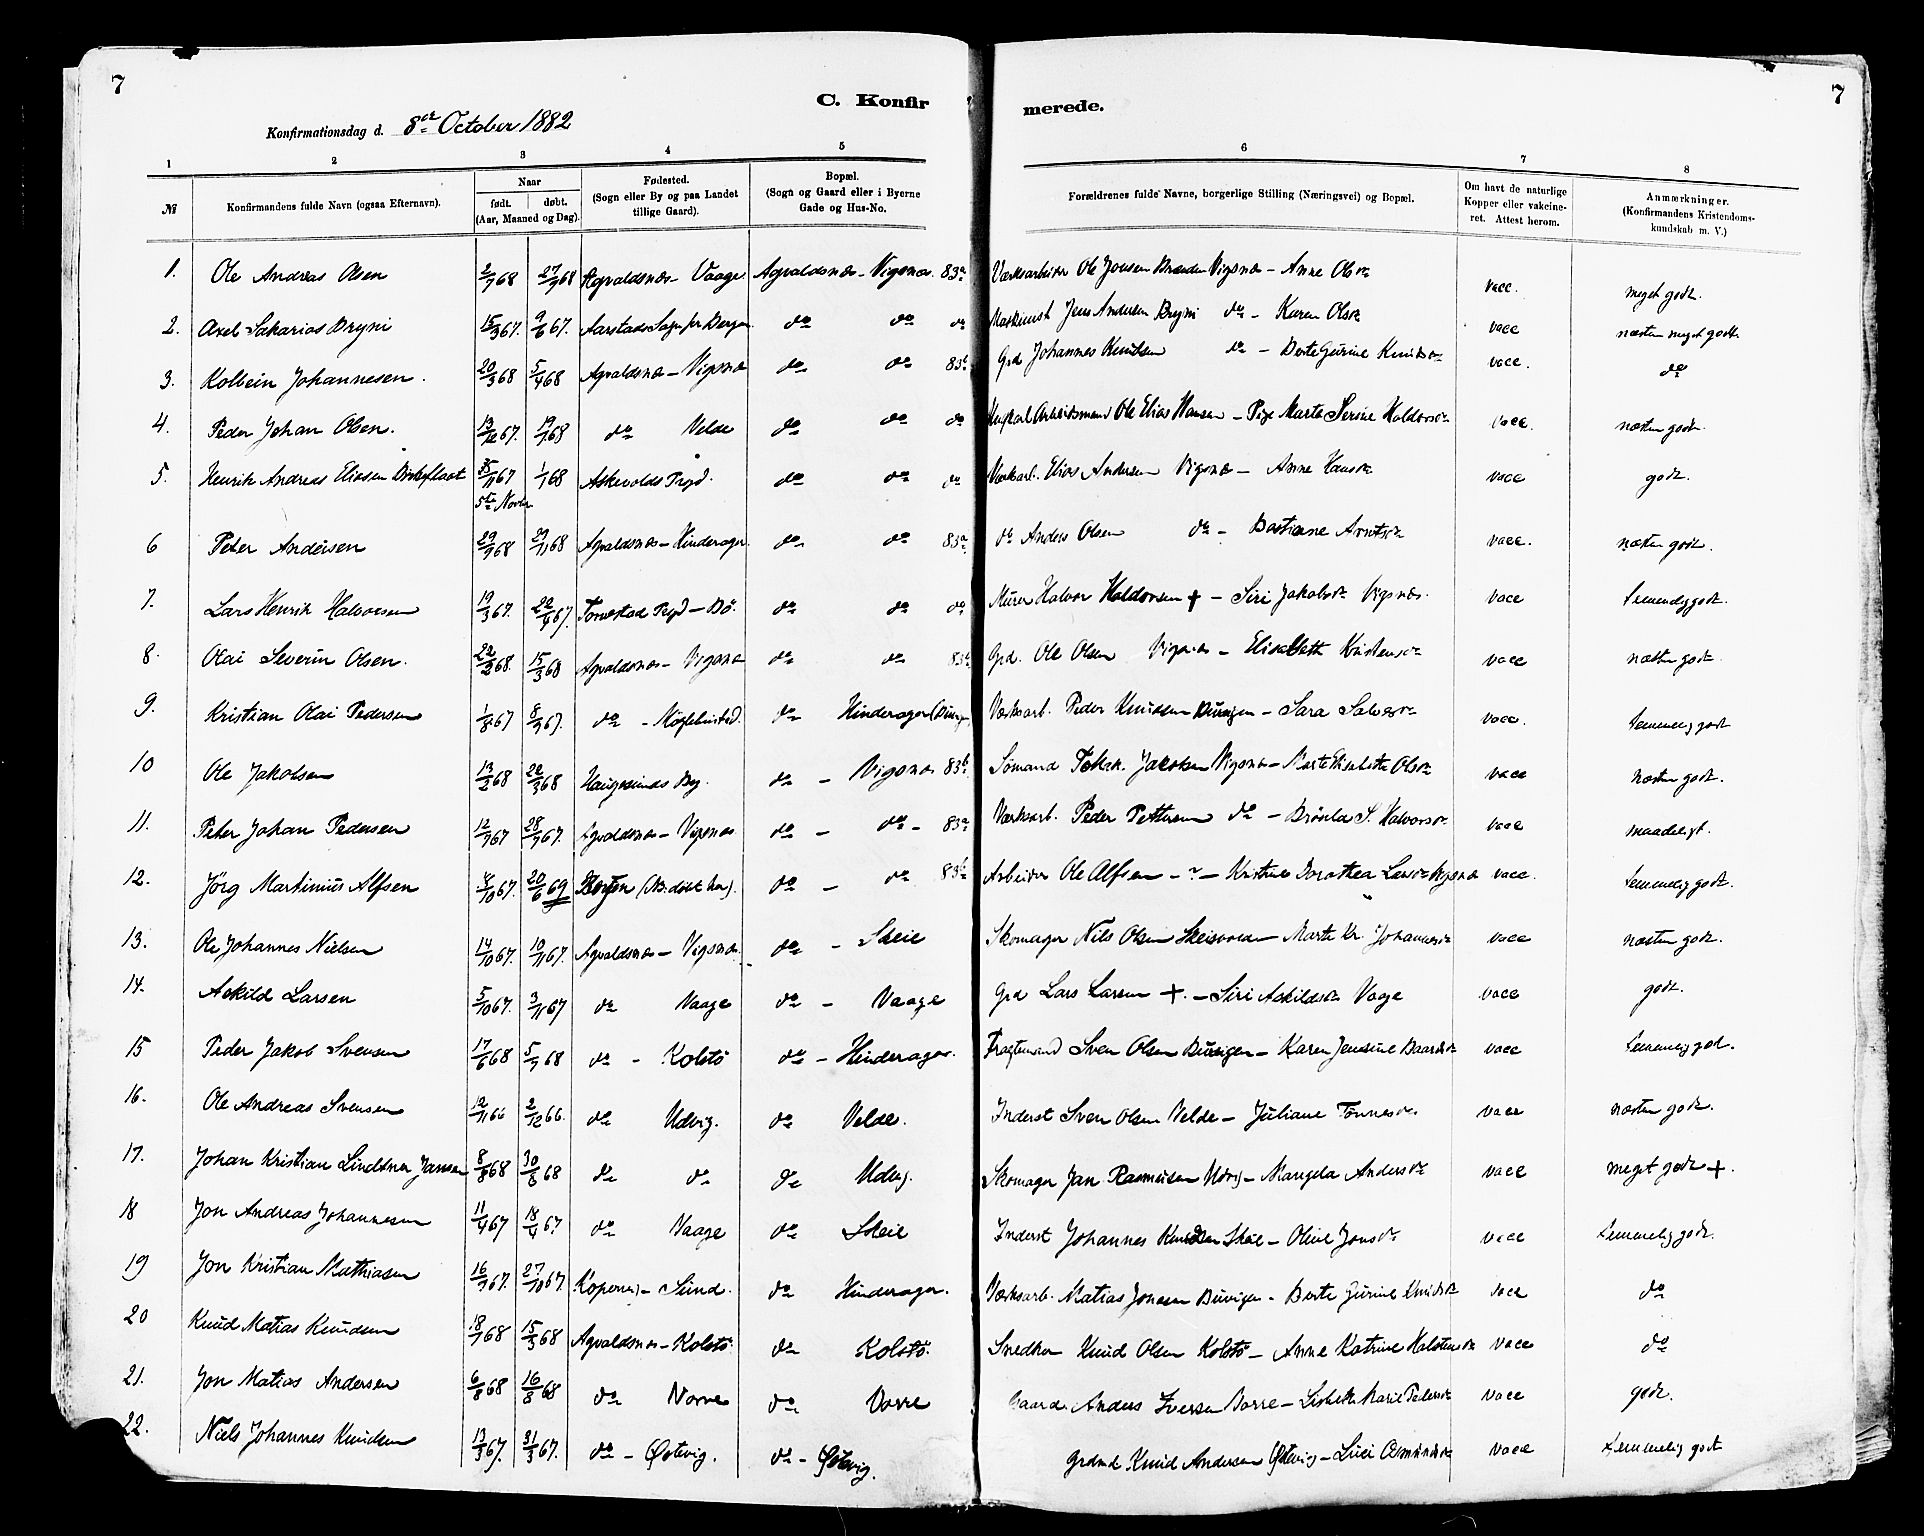 7
C. Konfir
merede.
7
Konfirmationsdag d. 8de October 1882
1 2 3 4 5 6 7 8
№ Konfirmandens fulde Navn (ogsaa Efternavn). Naar født. døbt. (Aar, Maaned og Dag). Fødested. (Sogn eller By og paa Landet tillige Gaard). Bopæl. (Sogn og Gaard eller i Byerne Gade og Hus-No. Forældrenes fulde Navne, borgerlige Stilling (Næringsvei) og Bopæl. Om havt de naturlige Kopper eller vakcineret. Attest herom. Anmærkninger. (Konfirmandens Kristendomskundskab m. V.)
1. Ole Andreas Olsen 2/7 68 27/7 68 Agvaldsnæs - Vaage Agvaldsnæs - Vigsnæs. 83a Værksarbeider Ole Jonsen Vigsnæs - Anne Olsdr vacc. meget godt.
2. Axel Sakarias Brÿni 15/3 67. 9/6 67. Aarstads Sogn pr Bergen do do do Maskinist Jens Andersen Brÿni do - Karen Olsdr vacc næsten meget godt
3. Kolbein Johannesen. 20/3 68 5/4 68 Agvaldsnæs - Vigsnæs do do 83b Grd Johannes Knudsen do - Berte Gurine Knudsdr vacc. do
4. Peder Johan Olsen. 13/12 67. 19/1 68 do Velde do do do Ungkarl Arbeidsmand Ole Elias Hansen - Pige Marta Serine Haldorsdr vacc. næsten godt.
5. Henrik Andreas Eliasen 5/11 67 1/1 68 Askevolds Prgd. do do do Værksarb. Elias Andersen Vigsnæs - Anne Hansdr vacc godt.
5te Novbr
6 Peter Andersen 29/9 68 29/11 68 Agvaldsnæs - Hinderager do do 83a do Anders Olsen do - Bastiane Arntsdr vacc. næsten godt.
7. Lars Henrik Halvorsen 19/3 67. 22/4 67. Tornestad Prgd - Bö. do do do Murer Halvor Haldorsen + - Siri Jakobsdr Vigsnæs. vacc temmelig godt.
8. Olai Severin Olsen. 22/2 68. 15/3 68 Agvaldsnæs - Vigsnæs do do 83b Grd. Ole Olsen Vigsnæs - Elisabeth Kristensdr vacc næsten godt.
9. Kristian Olai Pedersen 1/8 67 8/9 67. do - do Hinderager Værksarb. Peder Knudsen Buvigen - Sara Salvesdr vacc. temmelig godt
10 Ole Jakobsen 13/2 68 22/3 68 Haugesunds By. do - Vigsnæs 83b Sömand Jakobsen Vigsnæs - Marte Elisabetha Olsdr vacc næsten godt.
11. Peter Johan Pedersen 12/7 67 28/7 67. Agvaldsnæs - Vigsnæs do - do - 83a Værksarb. Peder Pettersen do - S. Halvorsdr vacc maadeligt.
12. Jörg Martinius Alfsen 4/10 67. 20/6 69 Bergen (Nb. döbt her). do - do 83b Arbeider Ole Alfsen - Kristine Dorothea Larsdr Vigsnæs vacc. temmelig godt.
13. Ole Johannes Nielsen 14/10 67. 10/11 67. Agvaldsnæs - Vigsnæs. do - Skeie Skomager Nils Olsen - Marta Kr. Johannesdr vacc næsten godt.
14. Askild Larsen 5/10 67. 3/11 67 do Vaage do - Vaage Grd Lars Larsen +. - Siri Askildsdr Vaage vacc godt.
15 Peder Jakob Svensen 17/6 68 5/7 68 do - Kolstö do - Hinderager. Fragtemand Sven Olsen Buvigen - Karen Jensine Baardsdr vacc temmelig godt.
16. Ole Andreas Svensen 12/11 66 2/12 66. do Udvig. do Velde. Inderst Sven Olsen Velde - Juliane Tönnesdr vacc næsten godt.
17. Johan Kristian Lindtner Jansen 8/8 68 30/8 68 do do do Udvig. Skomager Jan Rasmussen Udvig - Mangela Andersdr vacc meget godt +.
18 Jon Andreas Johannesen 11/4 67 18/4 67. do Vaage do Skeie Inderst Johannes Knudsen Skeie - Oline Jonsdr vacc temmelig godt.
19 Jon Kristian Mathiasen 16/9 67. 27/10 67. Kopervig - Sund. do Hinderager. Værksarb. Matias Jonsen Buvigen - Berte Gurine Knudsdr vacc do
20 Knud Matias Knudsen 18/1 68 15/3 68 Agvaldsnæs - Kolstö do Kolstö. Snedker Knud Olsen Kolstö - Anne Katrine Halstensdr vacc do
21. Jon Matias Andersen 6/8 68 16/8 68 do Vorre do Vorre Gaard. Anders Iversen Vorre - Lisbeth Marie Pedersdr vacc godt.
22. Niels Johannes Knudsen 13/3 67. 31/3 67. do - Østvig. do - Østvig. Grdmd Knud Andersen Østvig - Lisei Osmundsdr vacc temmelig godt